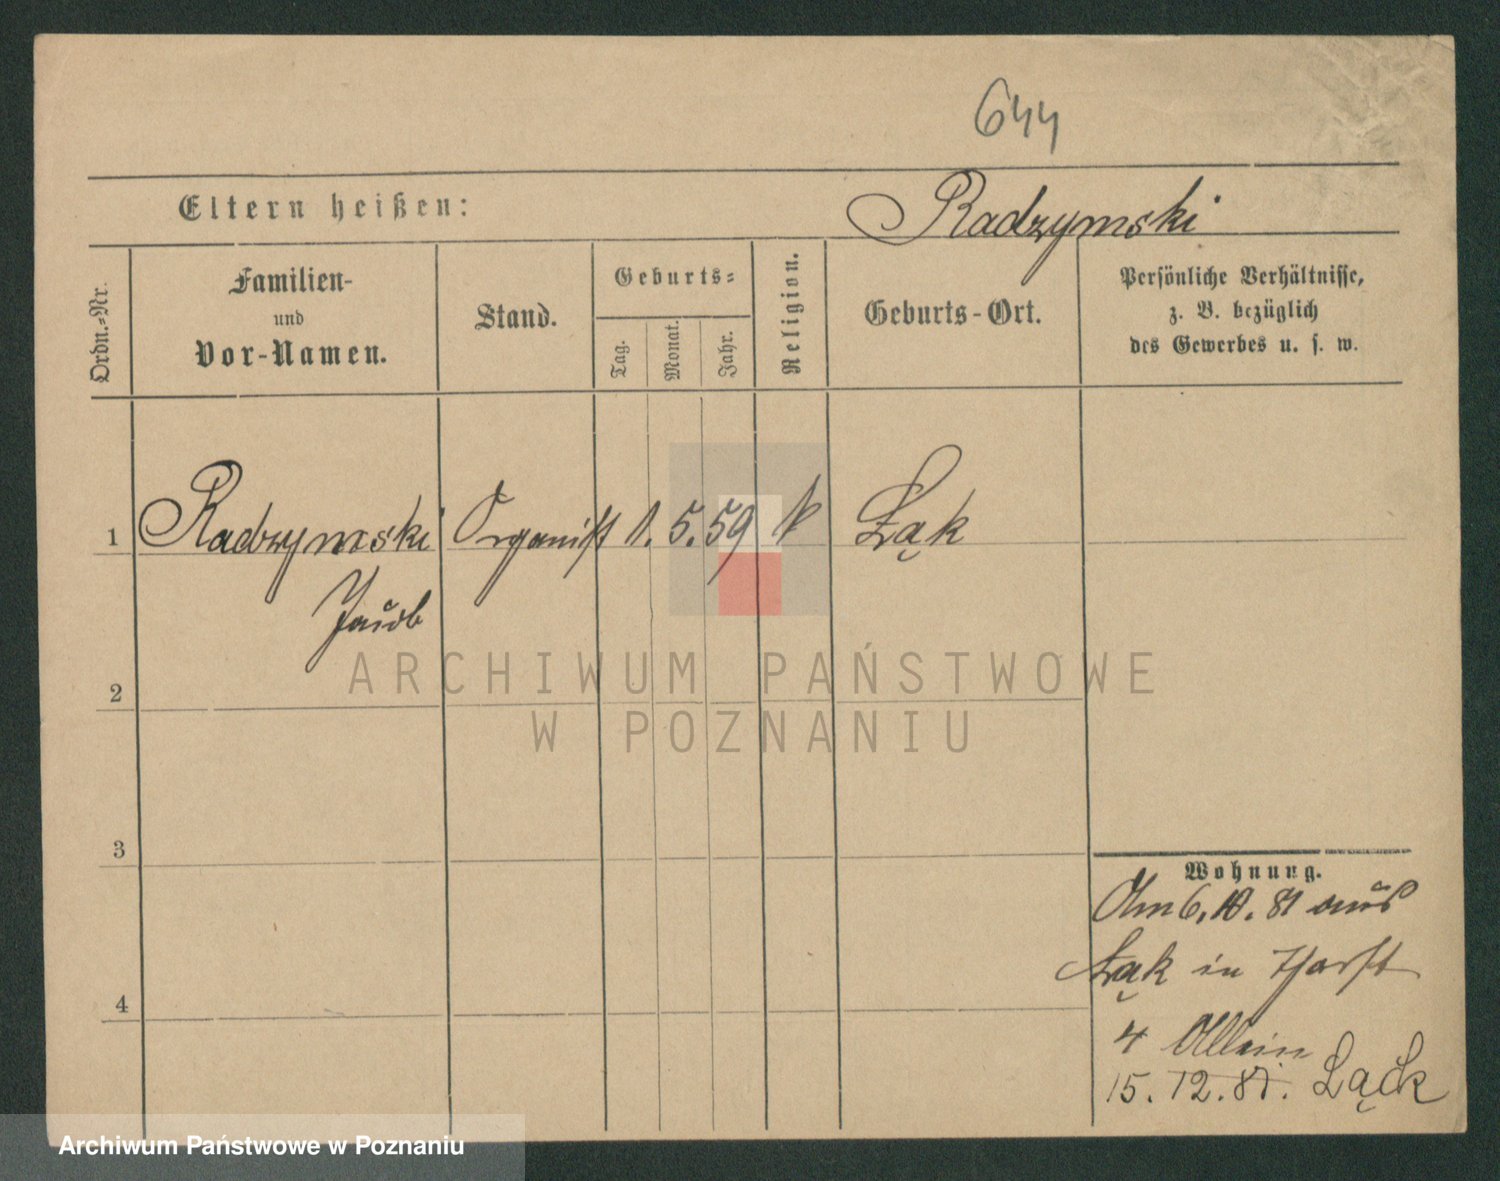 644
Eltern heißen:
Radzymski
Ordn.-Nr.
Familien-
und
Vor-Namen.
Stand.
Geburts-
Tag.
Monat.
Jahr.
Religion.
Geburts-Ort.
Persönliche Verhältnisse,
z. B. bezüglich
des Gewerbes u. s. w.
1 Radzymski Organist 1. 5. 59 k Łąk
Jacob
ARCHIWUM PAŃSTWOWE
W POZNANIU
2
3
4
Wohnung.
Am 6. 10. 81 aus
Łąk in
4 Allein
15. 12. 81. Łąck
Archiwum Państwowe w Poznaniu